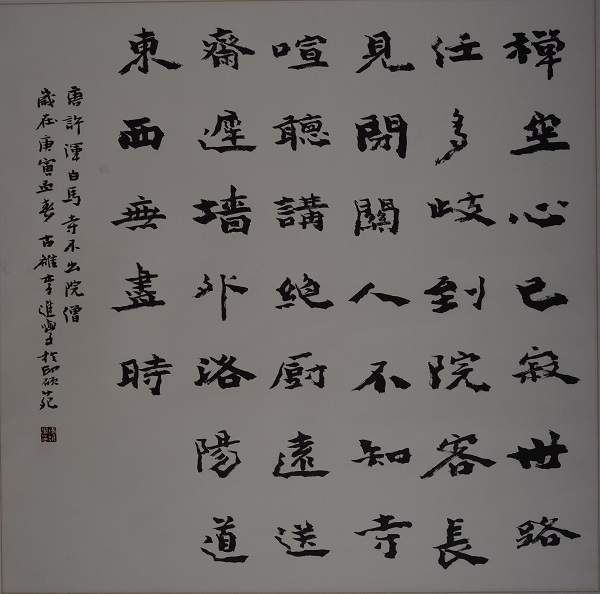 禅空心已寂世路
任多歧到院客長
見閉關人不知寺
喧聽講絶厨遠送
齋遲墻外洛陽道
東西無盡時
唐許渾白馬寺不出院僧
歲在庚寅孟春古雒李進學於印硯苑